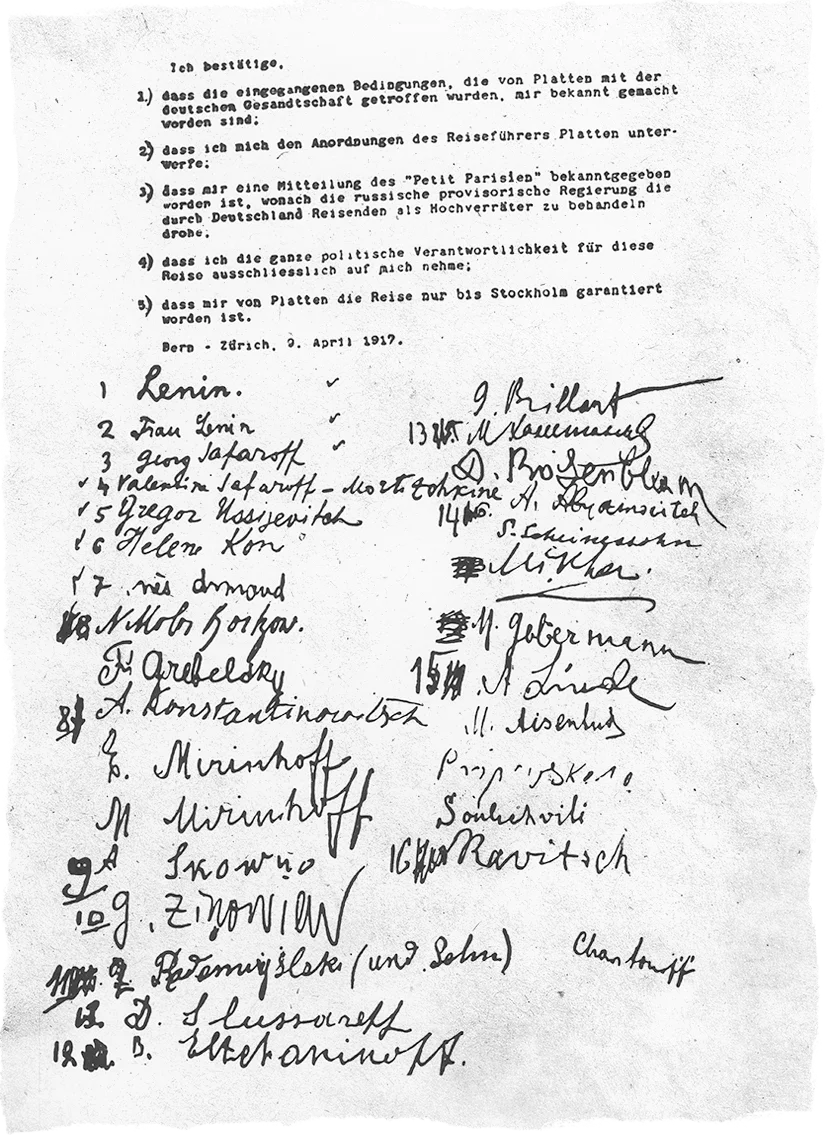 Ich bestätige,
1.) dass die eingegangenen Bedingungen, die von Platten mit der
deutschen Gesandtschaft getroffen wurden, mir bekannt gemacht
worden sind;
2) dass ich mich den Anordnungen des Reiseführers Platten unter-
werfe;
3) dass mir eine Mitteilung des "Petit Parisien" bekanntgegeben
worden ist, wonach die russische provisorische Regierung die
durch Deutschland Reisenden als Hochverräter zu behandeln
drohe;
4) dass ich die ganze politische Verantwortlichkeit für diese
Reise ausschliesslich auf mich nehme;
5) dass mir von Platten die Reise nur bis Stockholm garantiert
worden ist.
Bern - Zürich, 9. April 1917.
1 Lenin.
2 Frau Lenin
3 Georg Safaroff
4 Valentina Safaroff - Mortotschkine
5 Gregor Ussijevitch
6 Helene Kon
7 Inès Armand
8 N.
F. Grebelsky
A. Konstantinowitsch
E. Mirinhoff
M Mirinhoff
9 A Skowno
10 G. Zinowiew
(und Sohn)
12 D. Slussareff
B. Eltchaninoff.
G. Brillant
13 M
D. Rosenblum
14 A. Abramovitch
S. Scheinessohn
M. Gobermann
15 A Linde
M. Aisenhud
Pripevskero
Souliachvili
16 Ravitsch
Charitonoff